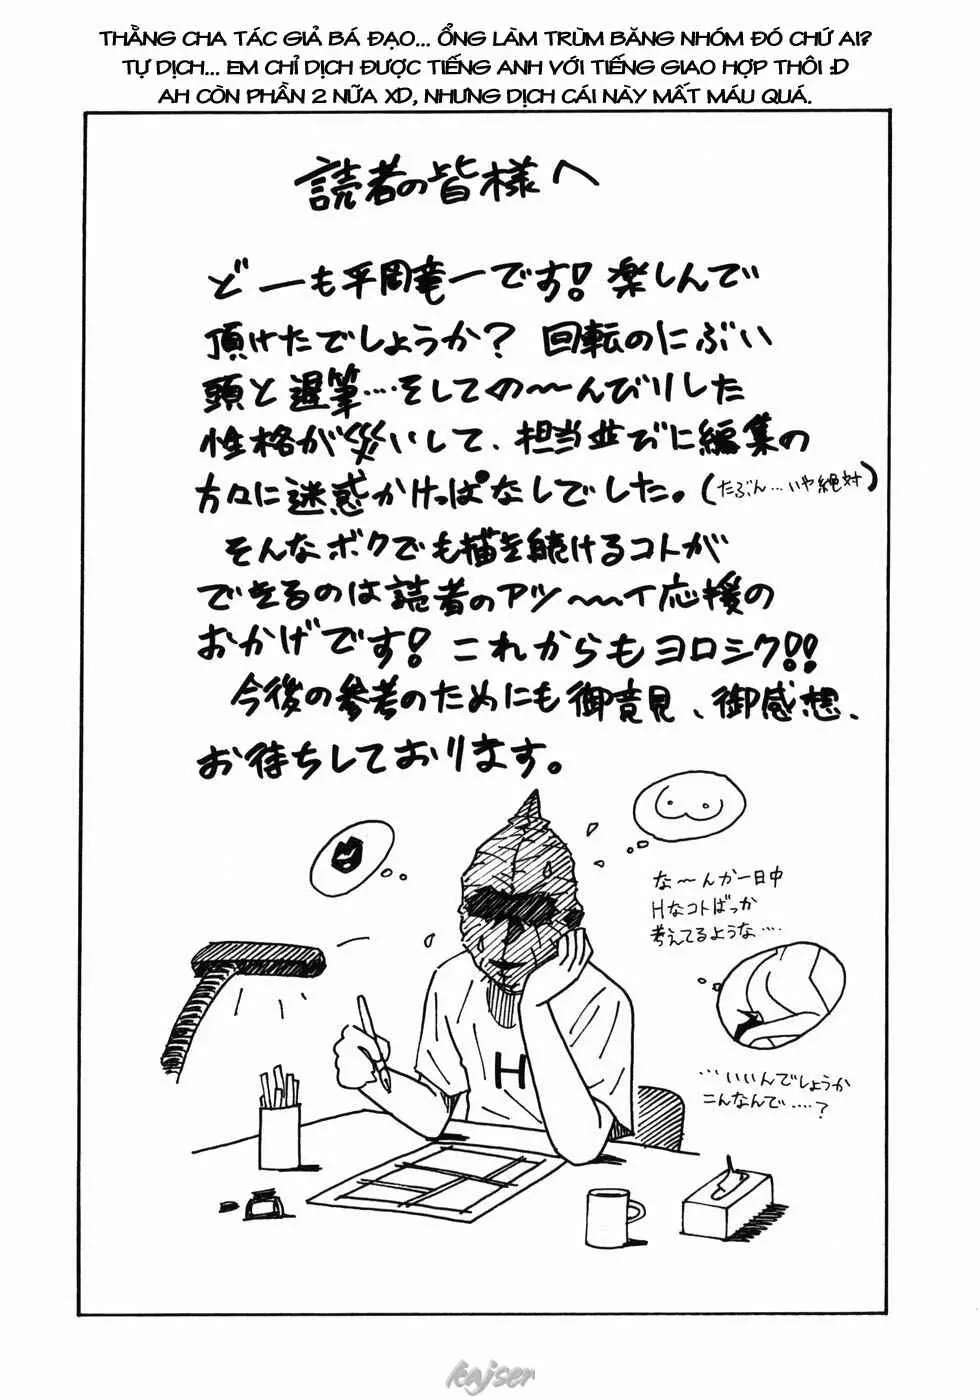 THẰNG CHA TÁC GIẢ BÁ ĐẠO... ỔNG LÀM TRÙM BĂNG NHÓM ĐÓ CHỨ AI?
TỰ DỊCH... EM CHỈ DỊCH ĐƯỢC TIẾNG ANH VỚI TIẾNG GIAO HỢP THÔI :D
AH CÒN PHẦN 2 NỮA XD, NHƯNG DỊCH CÁI NÀY MẤT MÁU QUÁ.
読者の皆様へ
どーも平岡竜一です! 楽しんで
頂けたでしょうか? 回転のにぶい
頭と遅筆…そしての〜んびりした
性格が災いして、担当並びに編集の
方々に迷惑かけっぱなしでした。(たぶん…いや絶対)
そんなボクでも描き続けるコトが
できるのは読者のアツ〜〜イ応援の
おかげです! これからもヨロシク!!
今後の参考のためにも御意見、御感想、
お待ちしております。
な〜んか一日中
Hなコトばっか
考えてるような…
…いいんでしょうか
こんなんで……?
H
kajser